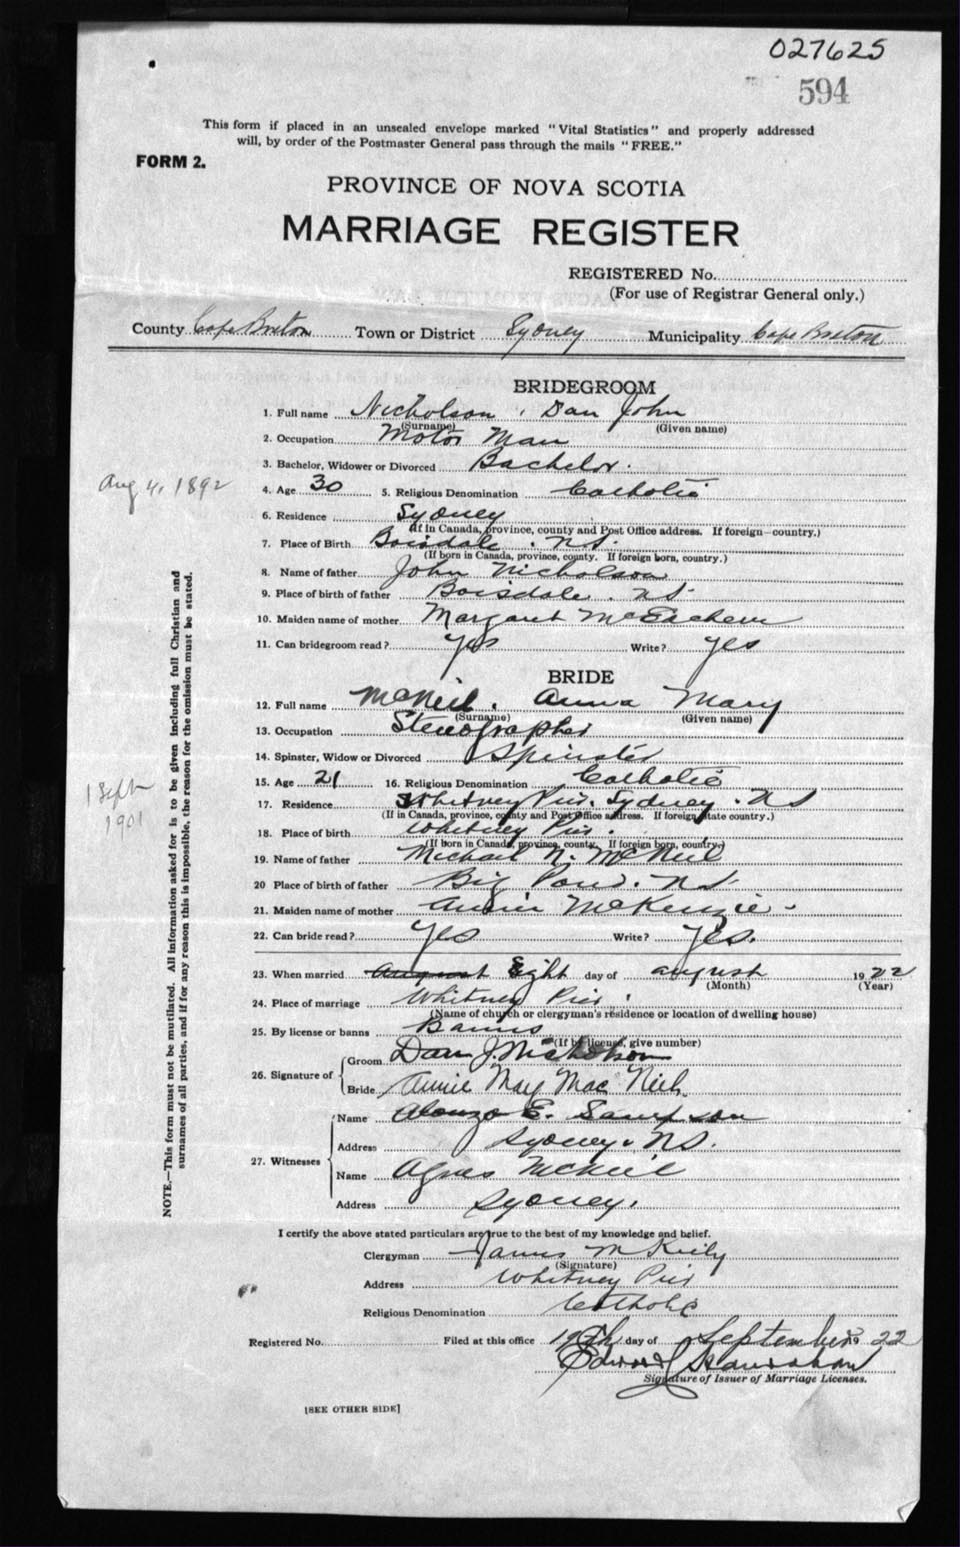 027625
594
This form if placed in an unsealed envelope marked "Vital Statistics" and properly addressed
will, by order of the Postmaster General pass through the mails "FREE."
FORM 2.
PROVINCE OF NOVA SCOTIA
MARRIAGE REGISTER
REGISTERED No.
(For use of Registrar General only.)
County Cape Breton Town or District Sydney Municipality Cape Breton
BRIDEGROOM
1. Full name Nicholson, Dan John
(Surname) (Given name)
2. Occupation Motor Man
3. Bachelor, Widower or Divorced Bachelor.
Aug 4, 1892
4. Age 30 5. Religious Denomination Catholic
6. Residence Sydney
(If in Canada, province, county and Post Office address. If foreign—country.)
7. Place of Birth Boisdale. N.S.
(If born in Canada, province, county. If foreign born, country.)
8. Name of father John Nicholson
9. Place of birth of father Boisdale. N.S.
10. Maiden name of mother Margaret McEachern
11. Can bridegroom read? Yes Write? Yes
BRIDE
12. Full name McNeil. Anna Mary
(Surname) (Given name)
13. Occupation Stenographer
14. Spinster, Widow or Divorced Spinster
15. Age 21 16. Religious Denomination Catholic
1 Sept
1901
17. Residence Whitney Pier. Sydney. N.S
(If in Canada, province, county and Post Office address. If foreign state country.)
18. Place of birth Whitney Pier.
(If born in Canada, province, county. If foreign born, country.)
19. Name of father Michael N. McNeil
20 Place of birth of father Big Pond. N.S.
21. Maiden name of mother Annie McKenzie
22. Can bride read? Yes Write? Yes.
23. When married August Eight day of August 1922
(Month) (Year)
24. Place of marriage Whitney Pier.
(Name of church or clergyman's residence or location of dwelling house)
25. By license or banns Banns
(If by license, give number)
26. Signature of
Groom Dan J. Nicholson
Bride Annie May MacNeil
27. Witnesses
Name Alonzo E. Sampson
Address Sydney. N.S.
Name Agnes McNeil
Address Sydney.
I certify the above stated particulars are true to the best of my knowledge and belief.
Clergyman James M Kiely
(Signature)
Address Whitney Pier
Religious Denomination Catholic
Registered No. Filed at this office day of September 1922
Edward
Signature of Issuer of Marriage Licenses.
[SEE OTHER SIDE]
NOTE.—This form must not be mutilated. All information asked for is to be given including full Christian and
surnames of all parties, and if for any reason this is impossible, the reason for the omission must be stated.